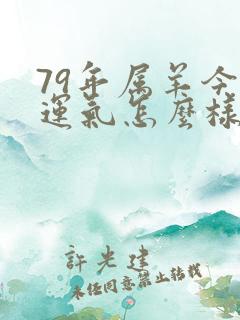 79年属羊今
運氣怎麼樣
許光建
未经同意禁止转载